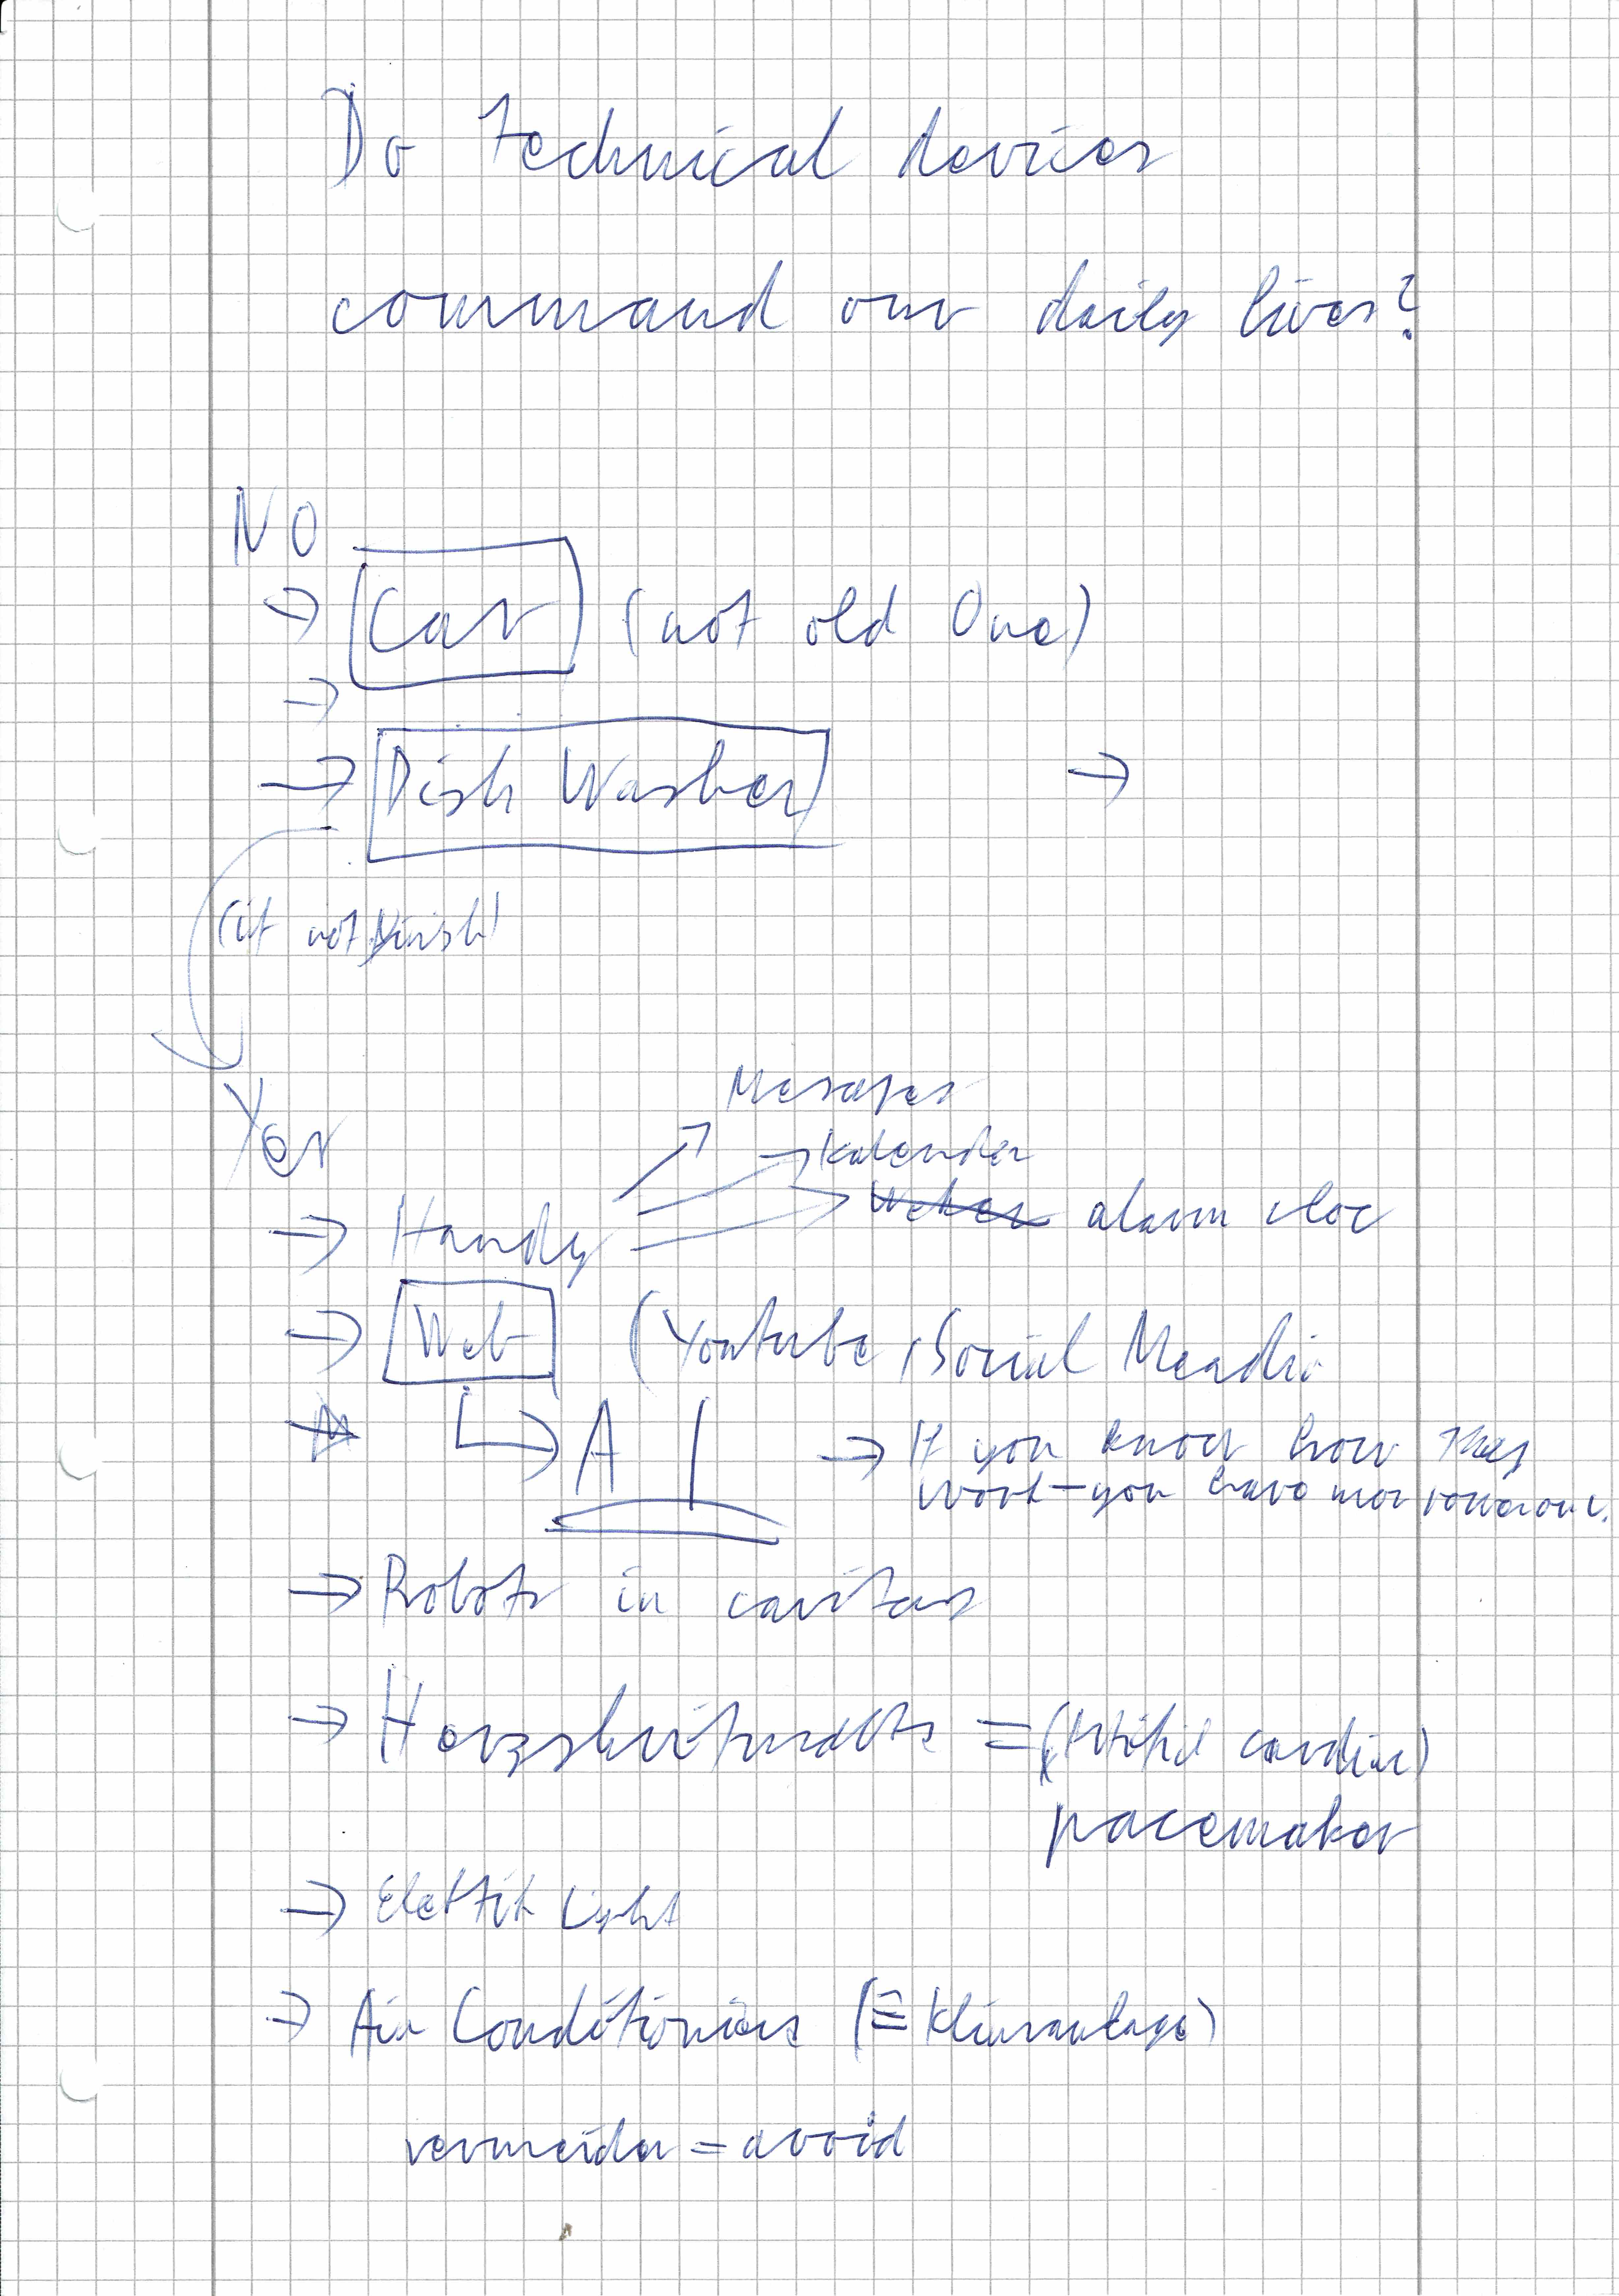 Do technical devices
command our daily lives?
NO
→ Car (not old One)
→
→ Dish Washer →
(if not finish)
Yes
Mesages
Kalender
→ Handy alarm cloc
→ Web (Youtube, Social Meadia
→ AI → If you know how they
work - you have mor
→ Robots in caritas
→ Herzschrittmacher = cardiac)
pacemaker
→ Elektrik Light
→ Air Conditioniers (≙ Klimaanlage)
vermeiden = avoid